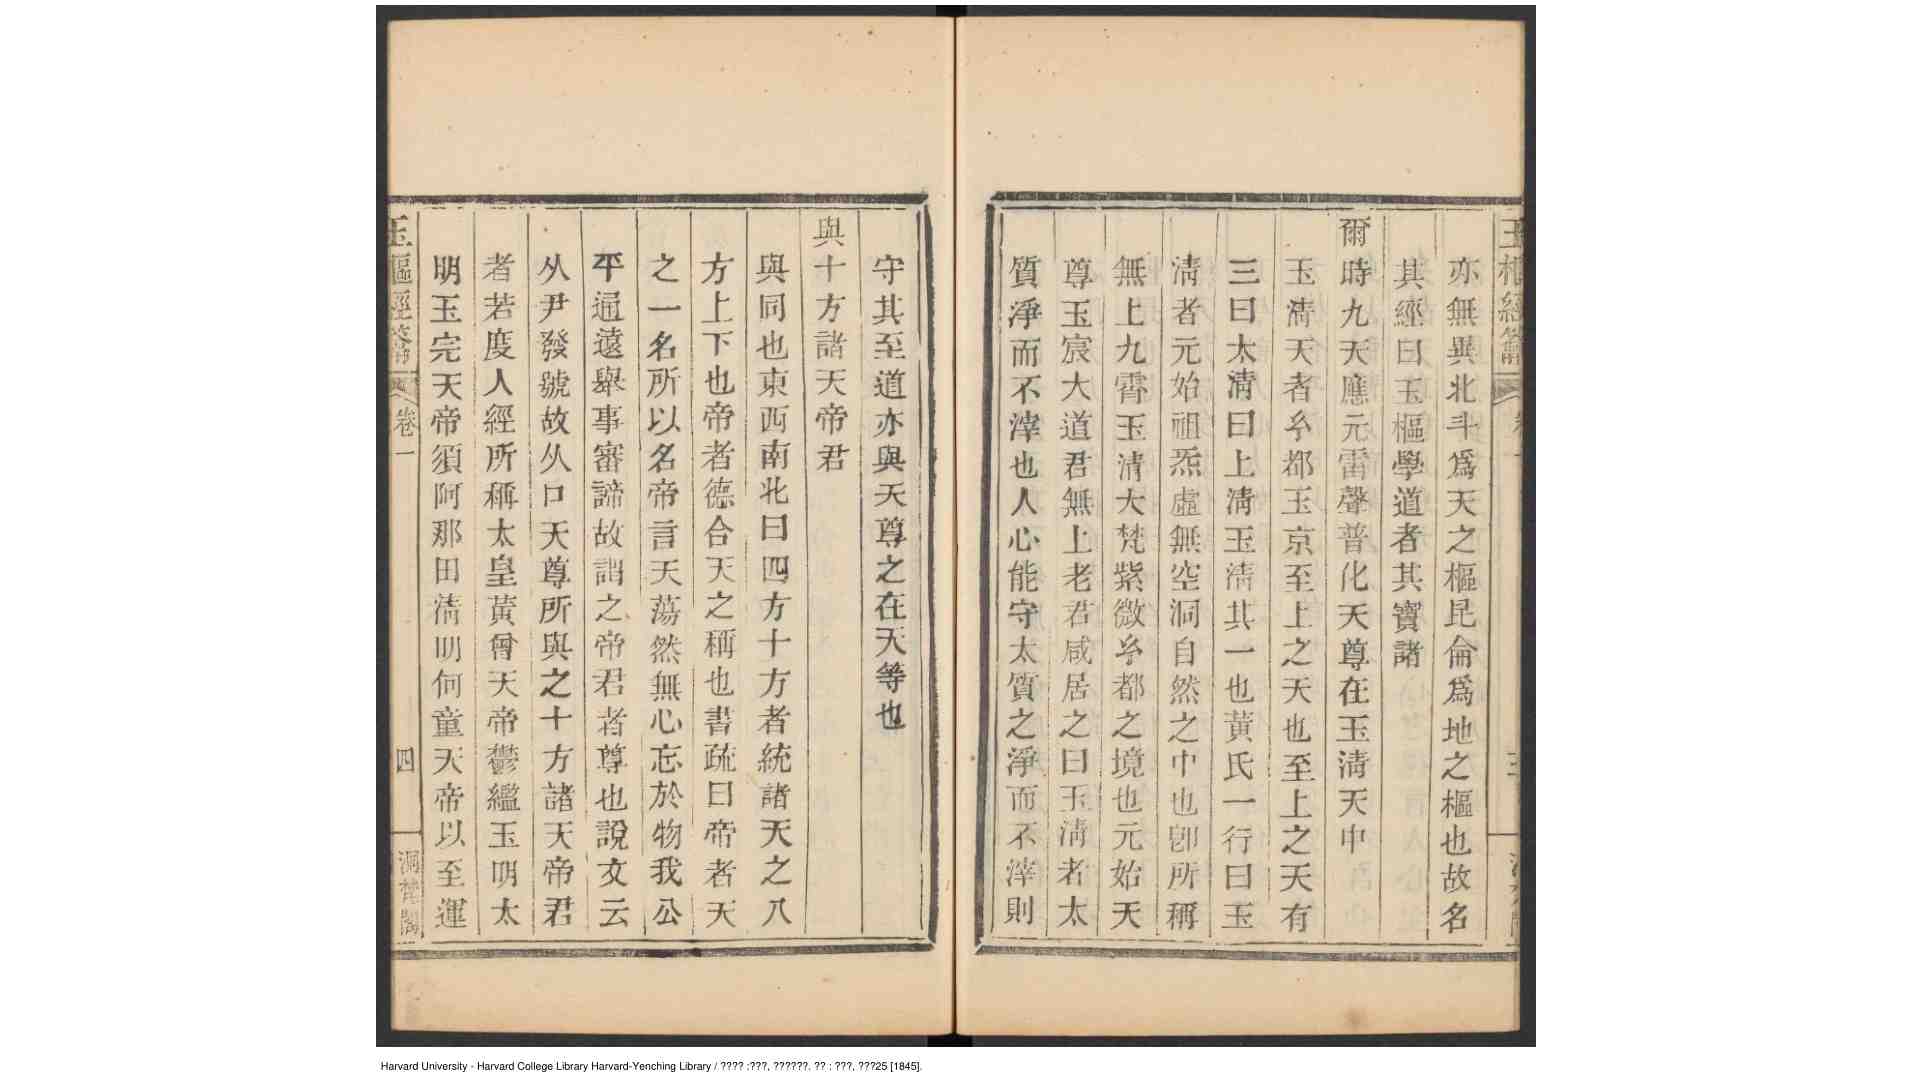 玉樞經籥
亦無異北斗爲天之樞昆侖爲地之樞也故名
其經曰玉樞學道者其寶諸
爾時九天應元雷聲普化天尊在玉淸天中
玉淸天者𤣥都玉京至上之天也至上之天有
三曰太淸曰上淸玉淸其一也黃氏一行曰玉
淸者元始祖炁虛無空洞自然之中也卽所稱
無上九霄玉淸大梵紫微𤣥都之境也元始天
尊玉宸大道君無上老君咸居之曰玉淸者太
質淨而不滓也人心能守太質之淨而不滓則
守其至道亦與天尊之在天等也
與十方諸天帝君
與同也東西南北曰四方十方者統諸天之八
方上下也帝者德合天之稱也書疏曰帝者天
之一名所以名帝言天蕩然無心忘於物我公
平通遠舉事審諦故謂之帝君者尊也說文云
从尹發號故从口天尊所與之十方諸天帝君
者若度人經所稱太皇黃曾天帝鬱繿玉明太
明玉完天帝須阿那田淸明何童天帝以至運
玉樞經籥
卷一
四
洞梵閣
Harvard University - Harvard College Library Harvard-Yenching Library / ???? :???, ??????. ?? : ???, ???25 [1845].